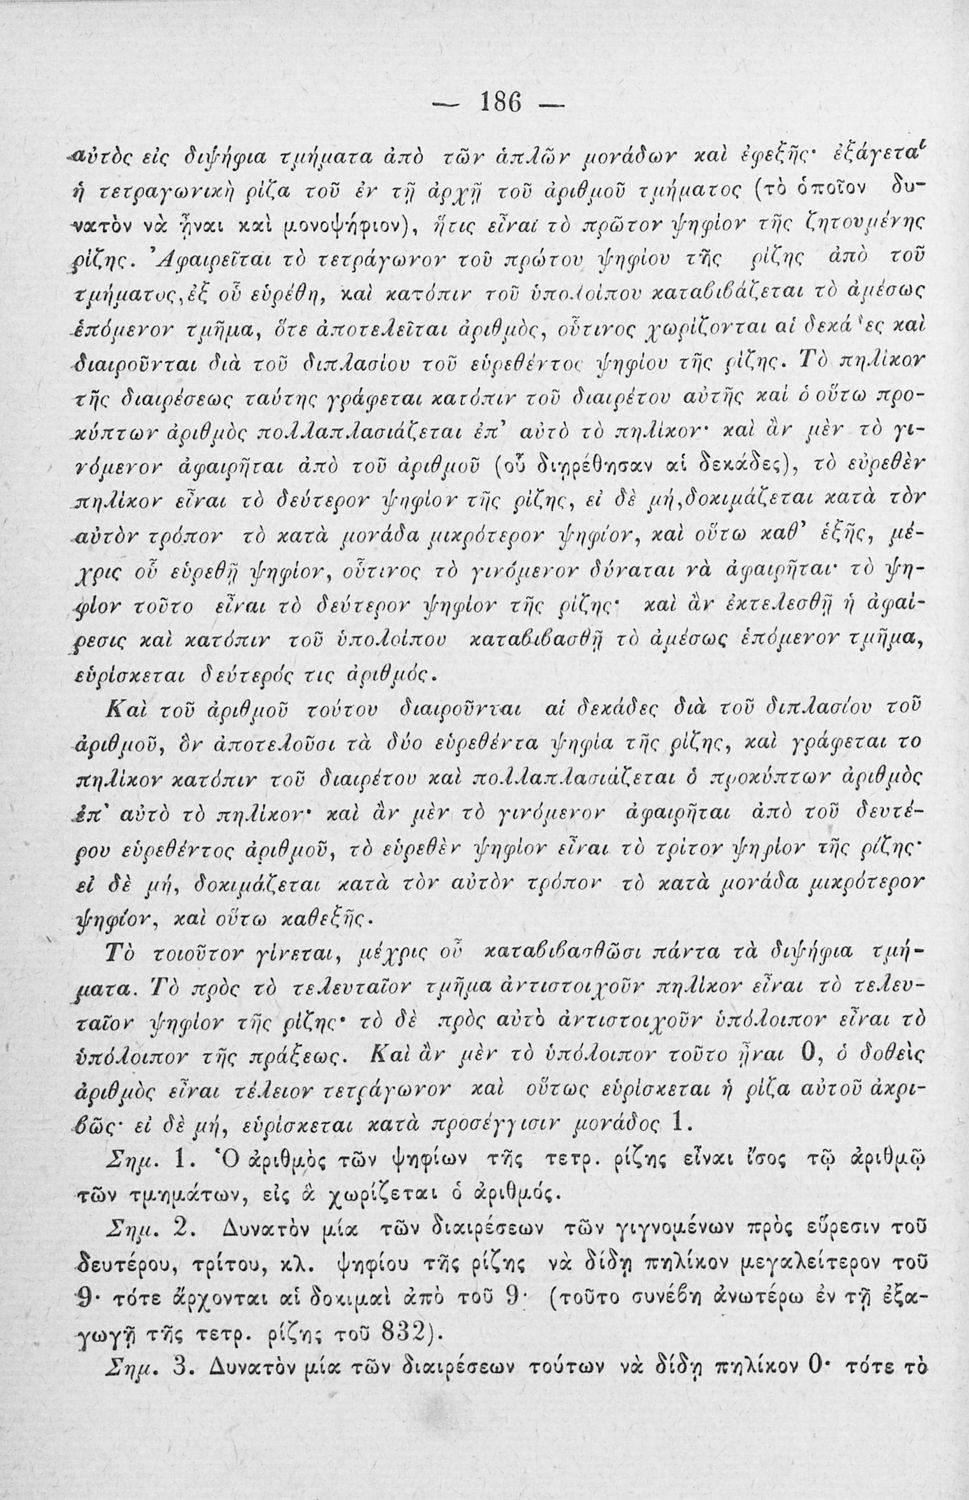 — 186 —
αὐτὸς εἰς διψήφια τμήματα ἀπὸ τῶν ἁπλῶν μονάδων καὶ ἐφεξῆς· ἐξάγεται
ἡ τετραγωνικὴ ρίζα τοῦ ἐν τῇ ἀρχῇ τοῦ ἀριθμοῦ τμήματος (τὸ ὁποῖον δυ-
νατὸν νὰ ᾖναι καὶ μονοψήφιον), ἥτις εἶναι τὸ πρῶτον ψηφίον τῆς ζητουμένης
ρίζης. Ἀφαιρεῖται τὸ τετράγωνον τοῦ πρώτου ψηφίου τῆς ρίζης ἀπὸ τοῦ
τμήματος, ἐξ οὗ εὑρέθη, καὶ κατόπιν τοῦ ὑπολοίπου καταβιβάζεται τὸ ἀμέσως
ἑπόμενον τμῆμα, ὅτε ἀποτελεῖται ἀριθμὸς, οὗτινος χωρίζονται αἱ δεκάδες καὶ
διαιροῦνται διὰ τοῦ διπλασίου τοῦ εὑρεθέντος ψηφίου τῆς ρίζης. Τὸ πηλίκον
τῆς διαιρέσεως ταύτης γράφεται κατόπιν τοῦ διαιρέτου αὐτῆς καὶ ὁ οὕτω προ-
κύπτων ἀριθμὸς πολλαπλασιάζεται ἐπ' αὐτὸ τὸ πηλίκον· καὶ ἂν μὲν τὸ γι-
νόμενον ἀφαιρῆται ἀπὸ τοῦ ἀριθμοῦ (οὗ διῃρέθησαν αἱ δεκάδες), τὸ εὑρεθὲν
πηλίκον εἶναι τὸ δεύτερον ψηφίον τῆς ρίζης, εἰ δὲ μή, δοκιμάζεται κατὰ τὸν
αὐτὸν τρόπον τὸ κατὰ μονάδα μικρότερον ψηφίον, καὶ οὕτω καθ' ἑξῆς, μέ-
χρις οὗ εὑρεθῇ ψηφίον, οὗτινος τὸ γινόμενον δύναται νὰ ἀφαιρῆται· τὸ ψη-
φίον τοῦτο εἶναι τὸ δεύτερον ψηφίον τῆς ρίζης· καὶ ἂν ἐκτελεσθῇ ἡ ἀφαί-
ρεσις καὶ κατόπιν τοῦ ὑπολοίπου καταβιβασθῇ τὸ ἀμέσως ἑπόμενον τμῆμα,
εὑρίσκεται δεύτερός τις ἀριθμός.
Καὶ τοῦ ἀριθμοῦ τούτου διαιροῦνται αἱ δεκάδες διὰ τοῦ διπλασίου τοῦ
ἀριθμοῦ, ὃν ἀποτελοῦσι τὰ δύο εὑρεθέντα ψηφία τῆς ρίζης, καὶ γράφεται το
πηλίκον κατόπιν τοῦ διαιρέτου καὶ πολλαπλασιάζεται ὁ προκύπτων ἀριθμὸς
ἐπ' αὐτὸ τὸ πηλίκον· καὶ ἂν μὲν τὸ γινόμενον ἀφαιρῆται ἀπὸ τοῦ δευτέ-
ρου εὑρεθέντος ἀριθμοῦ, τὸ εὑρεθὲν ψηφίον εἶναι τὸ τρίτον ψηφίον τῆς ρίζης·
εἰ δὲ μή, δοκιμάζεται κατὰ τὸν αὐτὸν τρόπον τὸ κατὰ μονάδα μικρότερον
ψηφίον, καὶ οὕτω καθεξῆς.
Τὸ τοιοῦτον γίνεται, μέχρις οὗ καταβιβασθῶσι πάντα τὰ διψήφια τμή-
ματα. Τὸ πρὸς τὸ τελευταῖον τμῆμα ἀντιστοιχοῦν πηλίκον εἶναι τὸ τελευ-
ταῖον ψηφίον τῆς ρίζης· τὸ δὲ πρὸς αὐτὸ ἀντιστοιχοῦν ὑπόλοιπον εἶναι τὸ
ὑπόλοιπον τῆς πράξεως. Καὶ ἂν μὲν τὸ ὑπόλοιπον τοῦτο ᾖναι 0, ὁ δοθεὶς
ἀριθμὸς εἶναι τέλειον τετράγωνον καὶ οὕτως εὑρίσκεται ἡ ρίζα αὐτοῦ ἀκρι-
βῶς· εἰ δὲ μή, εὑρίσκεται κατὰ προσέγγισιν μονάδος 1.
Σημ. 1. Ὁ ἀριθμὸς τῶν ψηφίων τῆς τετρ. ρίζης εἶναι ἴσος τῷ ἀριθμῷ
τῶν τμημάτων, εἰς ἃ χωρίζεται ὁ ἀριθμός.
Σημ. 2. Δυνατὸν μία τῶν διαιρέσεων τῶν γιγνομένων πρὸς εὕρεσιν τοῦ
δευτέρου, τρίτου, κλ. ψηφίου τῆς ρίζης νὰ δίδῃ πηλίκον μεγαλείτερον τοῦ
9· τότε ἄρχονται αἱ δοκιμαὶ ἀπὸ τοῦ 9· (τοῦτο συνέβη ἀνωτέρω ἐν τῇ ἐξα-
γωγῇ τῆς τετρ. ρίζης τοῦ 832).
Σημ. 3. Δυνατὸν μία τῶν διαιρέσεων τούτων νὰ δίδῃ πηλίκον 0· τότε τὸ